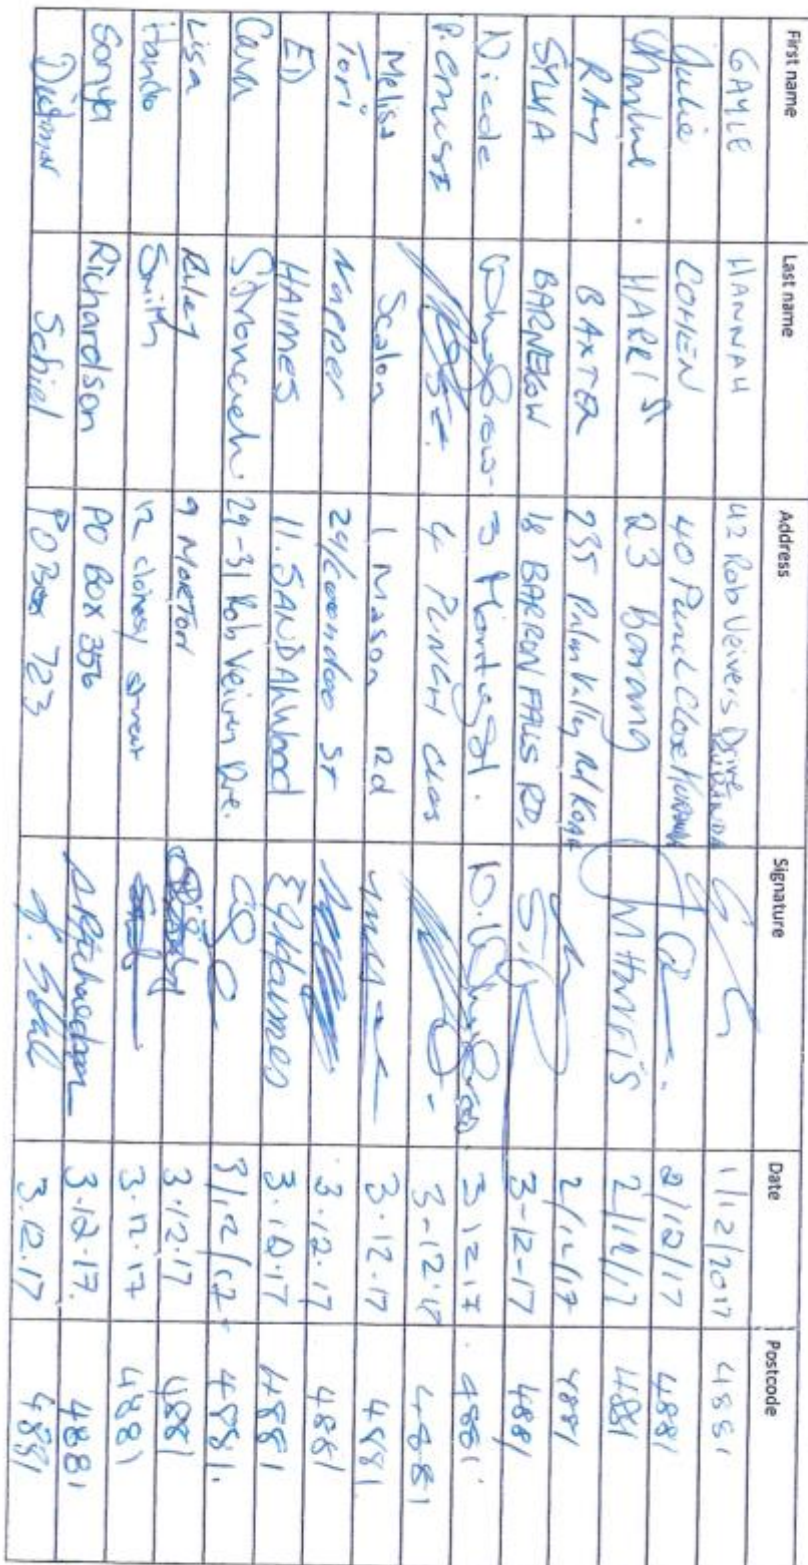 First name Last name Address Signature Date Postcode
GAYLE HANNAH 42 Rob Veivers Drive KURANDA 1/12/2017 4881
Julie COHEN 40 Punch Close KURANDA 2/12/17 4881
HARRIS 23 Barang M HARRIS 2/12/17 4881
RAY BAXTER 235 Palm Valley Rd KOAH 2/12/17 4881
SYLVIA BARNEKOW 18 BARRON FALLS RD. 3-12-17 4881
Nicole 3 St. 3 12 17 4881
4 PUNCH CLOS 3-12-17 4881
Melisa Scalon 1 Mason Rd 3.12.17 4881
Tori Napper St 3.12.17 4881
ED HAIMES 11. SANDALWOOD EJ Haimes 3.12.17 4881
Cara 29-31 Rob Veivers Dve. 3/12/17 4881.
Lisa Riley 9 MORTON 3.12.17 4881
Smith 12 street 3.12.17 4881
Sonya Richardson PO BOX 356 S Richardson 3.12.17. 4881
Dietmar Schiel PO Box 723 3.12.17 4881